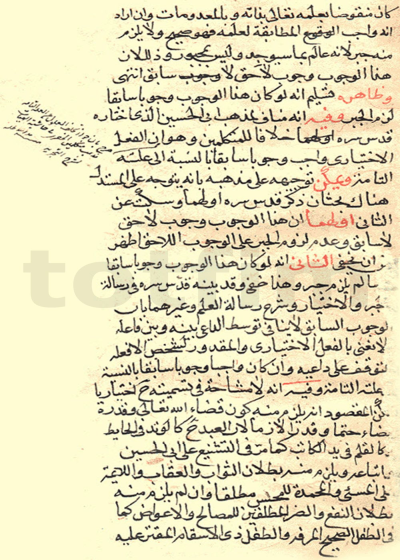 كان منقوضا بعلمه تعالى بذاته و بالمعدومات وان اراد
انه واجب الوقوع المطابقة لعلمه فهو صحيح ولا يلزم
منه جبر لانه عالم بما سيوجد وليس بمجبور وذلك لان
هذا الوجوب وجوب لاحق لا وجوب سابق انتهى
وظاهره تسليم انه لو كان هذا الوجوب وجوبا سابقا
لزم الجبر وفيه انه مناف لمذهب ابي الحسين الذي اختاره
قدس سره اولهما خلافا للمتكلمين وهو ان الفعل
الاختياري واجب وجوبا سابقا بالنسبة الى علته
التامة ويمكن توجيهه على مذهبه بانه يتوجه على المستدل
هناك بحثان ذكر قدس سره اولهما وسكت عن
الثاني اولهما ان هذا الوجوب وجوب لاحق
لا سابق وعدم لزوم الجبر على الوجوب اللاحق اظهر
من ان يخفى الثاني انه لو كان هذا الوجوب وجوبا سابقا
لم يلزم جبر وهذا حق وقد بينه قدس سره في رسالة
الجبر والاختيار وشرح رسالة العلم وغيرهما بان
الوجوب السابق لا ينافي توسط الداعي بينه وبين فاعله
لا يعني بالفعل الاختياري والمقدور للشخص الا فعله
المتوقف على داعيه وان كان واجبا وجوبا سابقا بالنسبة
علته التامة وفيه انه لا مشاحة في تسميته ح اختياريا
المقصود انه يلزم منه كون قضاء الله تعالى وقدره
قضاء حتما وقدرا لازما لان العبد ح كالوتد في الحايط
كالقلم في يد الكاتب كما مر في التشنيع على ابي الحسين
ويلزم منه بطلان الثواب والعقاب واللائمة
على المسيئ والمحمدة للمحسن مطلقا وان لم يلزم منه
بطلان النفع والضر المطلقين للمصالح والاعواض كما
في الطفل الصحيح المرفه والطفل ذي الاسقام المفتر عليه